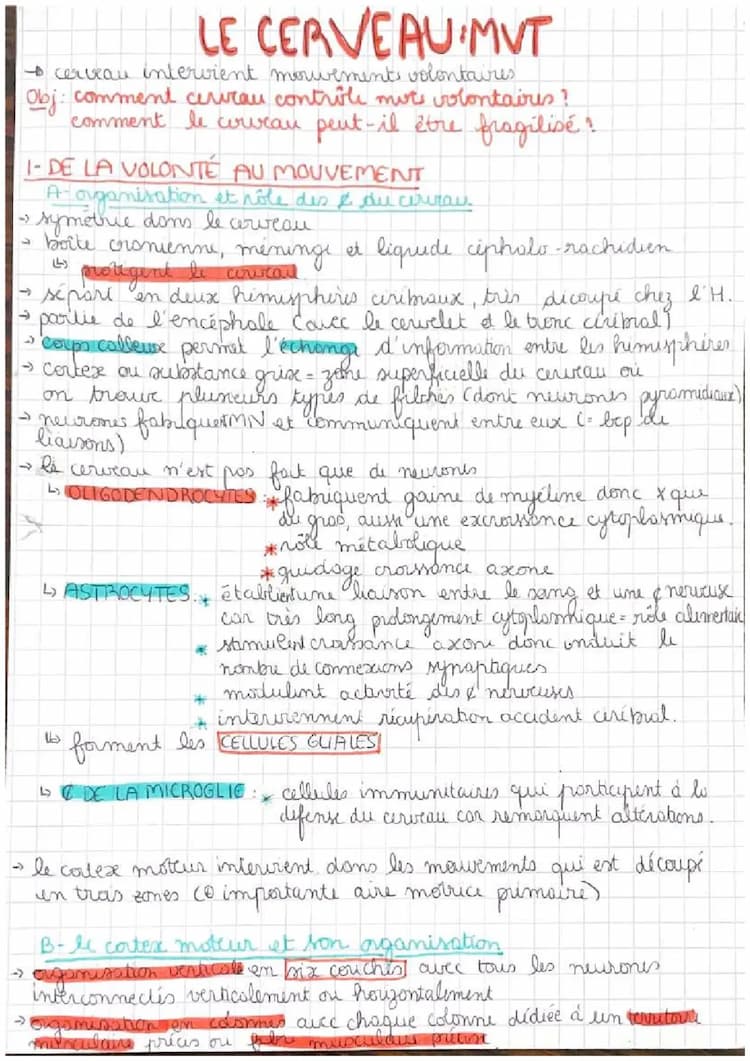 LE CERVEAU : MVT
→ cerveau intervient mouvements volontaires
Obj : comment cerveau contrôle mvts volontaires ?
comment le cerveau peut-il être fragilisé ?
1- DE LA VOLONTÉ AU MOUVEMENT
A- organisation et rôle des ₵ du cerveau
→ symétrie dans le cerveau
→ boîte cranienne, méninge et liquide céphalo-rachidien
↳ protègent le cerveau
→ séparé en deux hémisphères cérébraux, très découpé chez l'H.
→ partie de l'encéphale (avec le cervelet et le tronc cérébral)
→ corps calleux permet l'échange d'information entre les hémisphères
→ cortex ou substance grise = zone superficielle du cerveau où
on trouve plusieurs types de (dont neurones pyramidaux)
→ neurones fabriquent MN et communiquent entre eux (= bcp de
liaisons)
→ le cerveau n'est pas fait que de neurones
↳ OLIGODENDROCYTES : * fabriquent gaine de myéline donc × que
du gras, aussi une excroissance cytoplasmique.
* rôle métabolique
* guidage croissance axone
↳ ASTROCYTES : * établient une liaison entre le sang et une ₵ nerveuse
car très long prolongement cytoplasmique = rôle alimentaire
* stimulent croissance axone donc induit le
nombre de connexions synaptiques
* modulent activité des ₵ nerveuses
* interviennent récupération accident cérébral.
↳ forment les CELLULES GLIALES
↳ ₵ DE LA MICROGLIE : * cellules immunitaires qui participent à la
défense du cerveau car remarquent altérations.
→ le cortex moteur intervient dans les mouvements qui est découpé
en trois zones (⊕ importante aire motrice primaire)
B- le cortex moteur et son organisation
→ organisation verticale en six couches avec tous les neurones
interconnectés verticalement ou horizontalement
→ organisation en colonnes avec chaque colonne dédiée à un territoire
musculaire précis ou musculaire précise